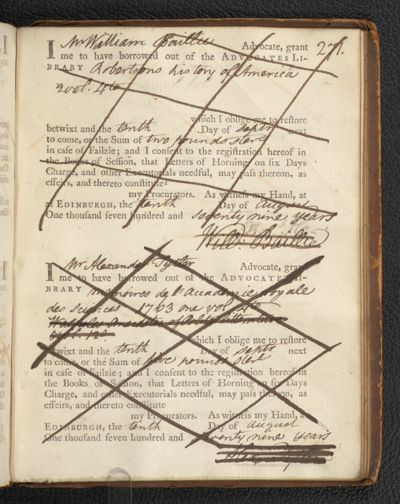 271.
I Mr William Baillie Advocate, grant
me to have borrowed out of the ADVOCATES LI-
BRARY Robertsons history of America
2 vol. 4to
which I oblige me to restore
betwixt and the tenth Day of Septr next
to come, or the Sum of two pounds sterl
in case of Failzie; and I consent to the registration hereof in
the Books of Session, that Letters of Horning on six Days
Charge, and other Executorials needful, may pass thereon, as
effeirs, and thereto constitute
my Procurators. As witness my Hand, at
at EDINBURGH, the tenth Day of August
One thousand seven hundred and seventy nine years
Will: Baillie
I Mr Alexander Tytler Advocate, grant
me to have borrowed out of the ADVOCATES LI-
BRARY memoires de l'Academie royale
des sciences 1763 one vol 4to
which I oblige me to restore
betwixt and the tenth Day of Septr next
to come, or the Sum of pounds sterl
in case of Failzie; and I consent to the registration hereof in
the Books of Session, that Letters of Horning on six Days
Charge, and other Executorials needful, may pass thereon, as
effeirs, and thereto constitute
my Procurators. As witness my Hand, at
EDINBURGH, the tenth Day of August
One thousand seven hundred and seventy nine years